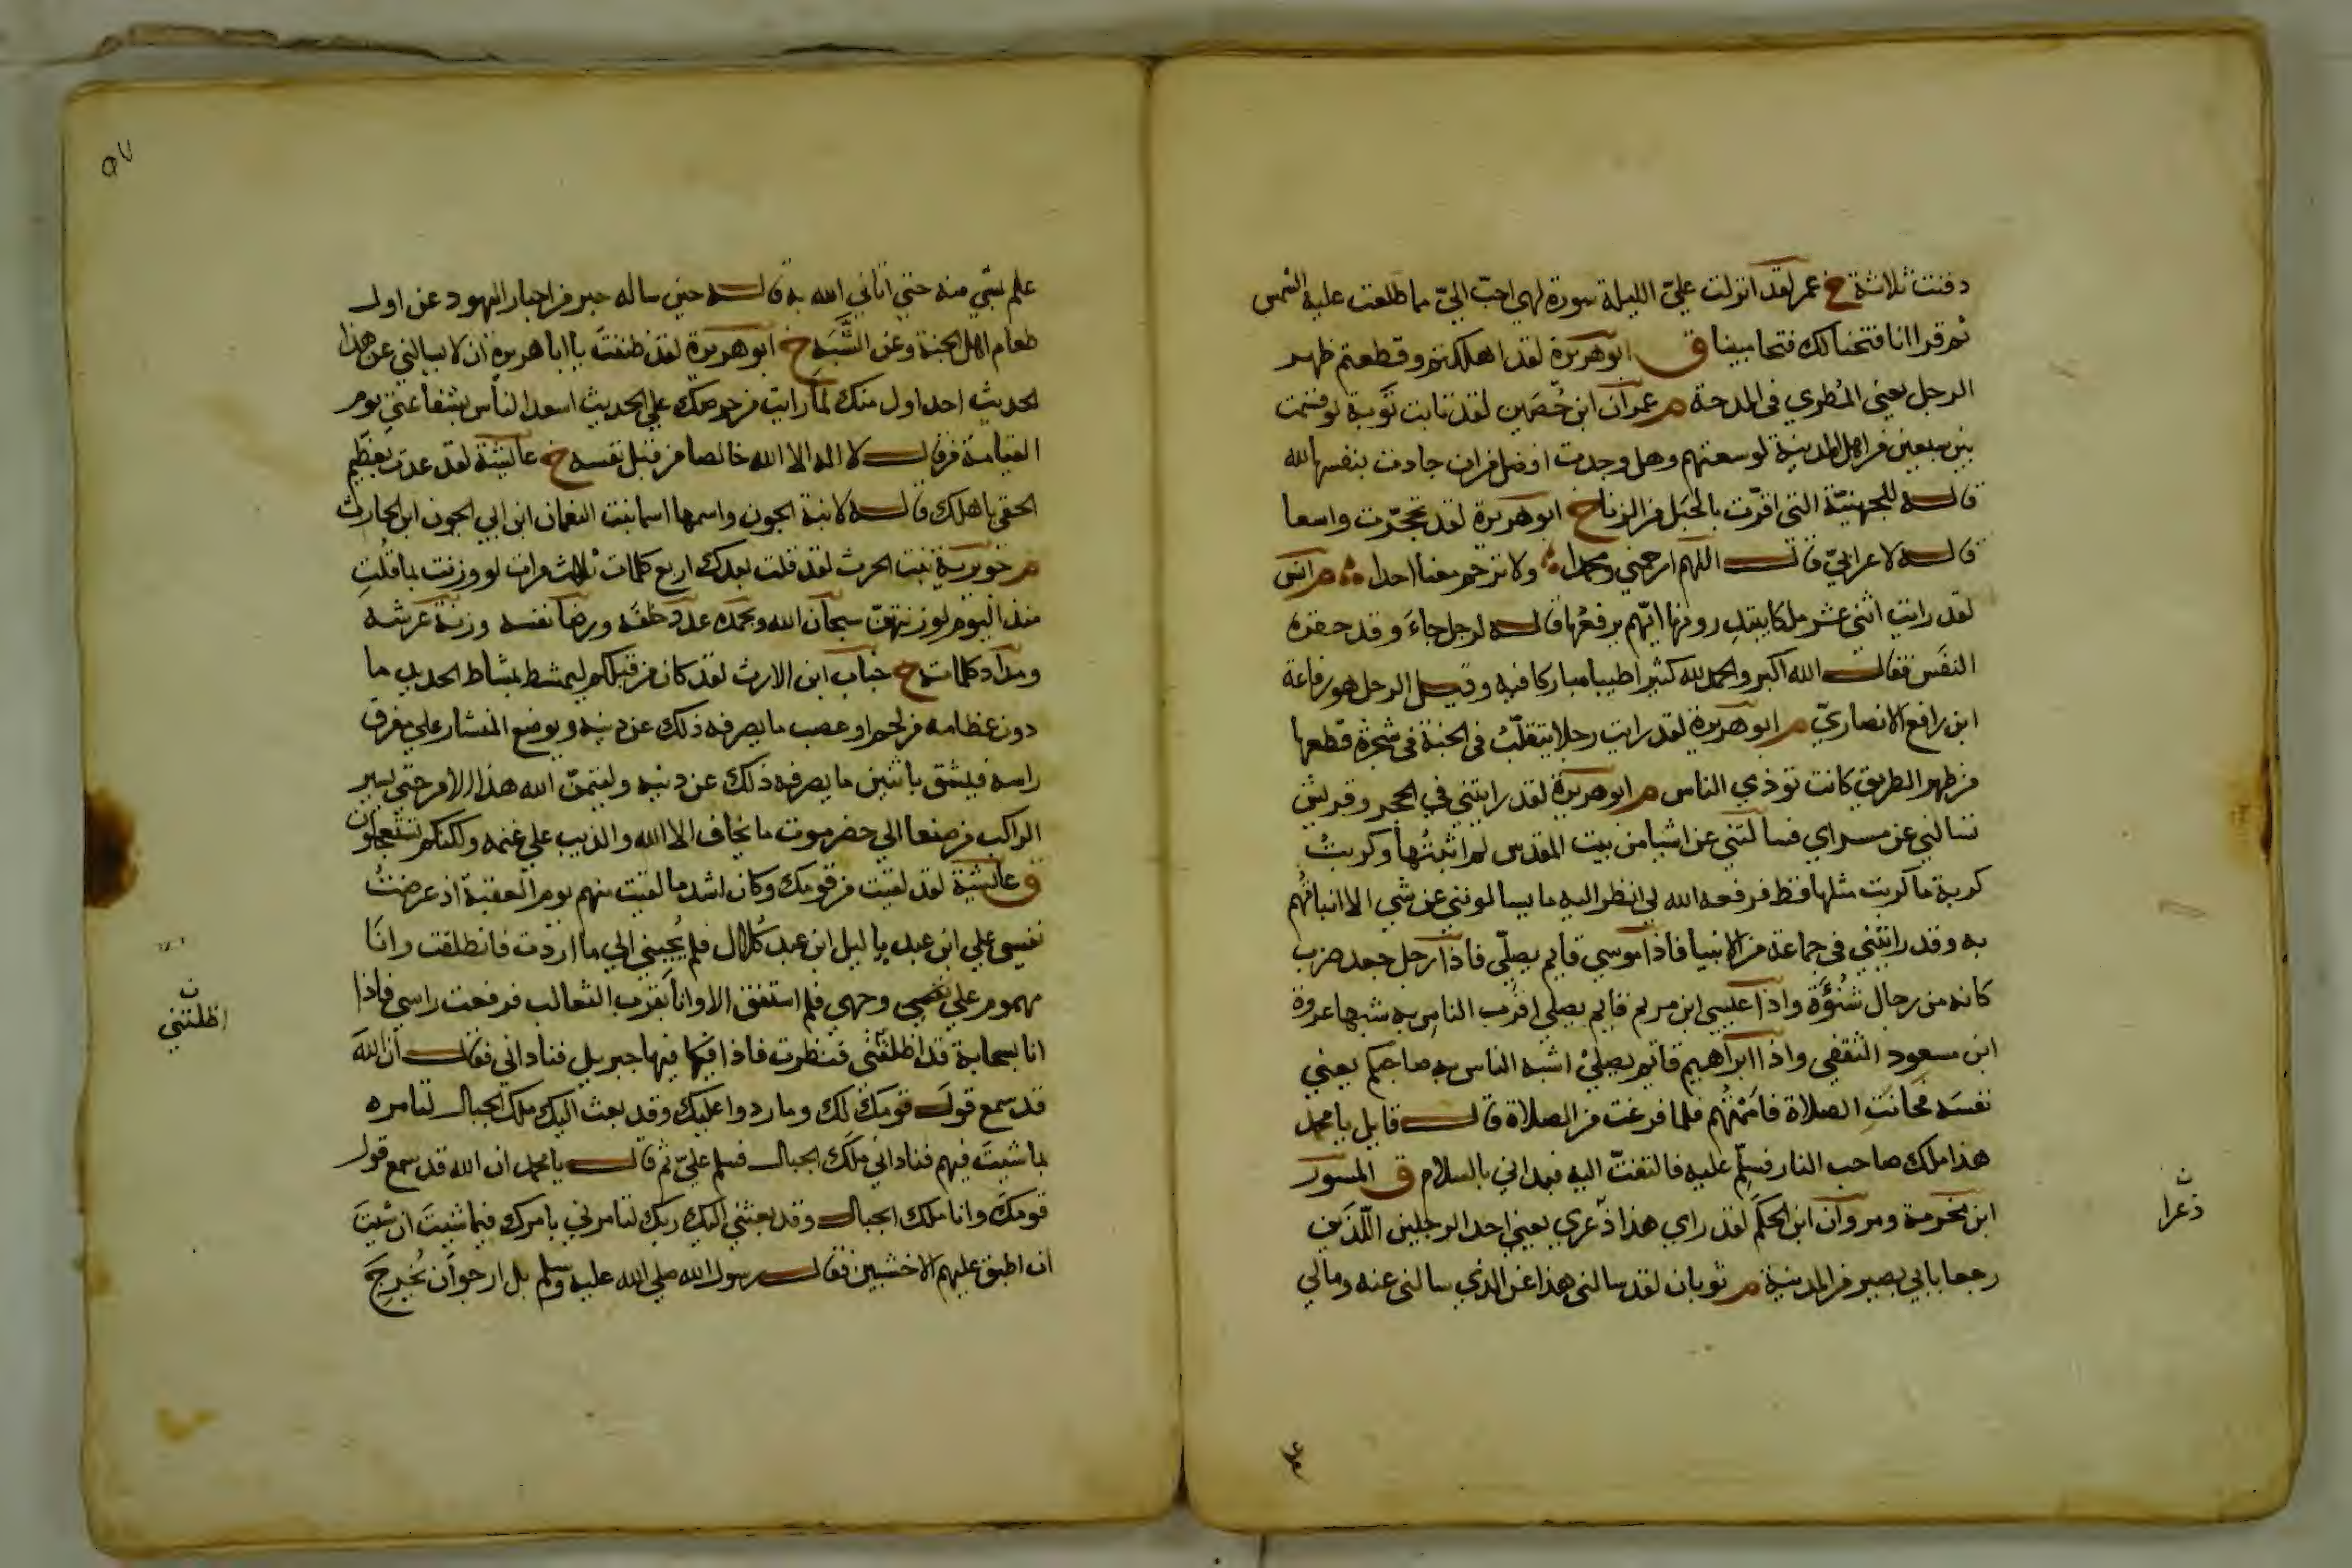 دفنت ثلاثة خ عمر لقد انزلت عليّ الليلة سورة لهي احبّ اليّ مما طلعت عليه الشمس
ثم قرا انا فتحنا لك فتحا مبينا ق ابو هريرة لقد اهلكتم وقطعتم ظهر
الرجل يعني المُطري في المدحة م عمران ابن حُصَين لقد تابت تَوبة لو قسمت
بين سبعين من اهل المدينة لوسعتهم وهل وجدت افضل من ان جادت بنفسها لله
قاله للجهنيّة التي اقرّت بالحَبَل من الزنا خ ابو هريرة لقد تحجّرت واسعا
قاله لاعرابيّ قال اللهم ارحمني ومحمدا ولا ترحم معنا احدا م انس
لقد رايت اثني عشر ملكا يبتدرونها ايّهم يرفعُها قاله لرجل جاءَ وقد حفزه
النفَس فقال الله اكبر والحمد لله كثيرا طيبا مباركا فيه وقيل الرجل هو رفاعة
ابن رافع الانصاريّ م ابو هريرة لقد رايت رجلا يتقلّبُ في الجنة في شجرة قطعها
من ظهر الطريق كانت توذي الناس م ابو هريرة لقد رايتني في الحجر وقريش
تسالني عن مسراي فسالتني عن اشيا من بيت المقدس لم اثبتُها وكربتُ
كربة ما كربت مثلها قط فرفعه الله لي انظر اليه ما يسالونني عن شي الا انباتُهم
به وقد رايتني في جماعة من الانبيا فاذا موسي قايم يصلّي فاذا رجل جعد ضرب
كانه من رجال شنُؤَة واذا عيسي ابن مريم قايم يصلي اقرب الناس به شبها عروة
ابن مسعود الثقفي واذا ابراهيم قايم يصلي اشبه الناس به صاحبكم يعني
نفسَه فحانتِ الصلاة فاممْتُهم فلما فرغت من الصلاة قال قايل يا محمد
هذا ملك صاحب النار فسلّم عليه فالتفتّ اليه فبداني بالسلام ق المسور
ابن مخرمة ومروان ابن الحكَم لقد راي هذا ذعري يعني احد الرجلين اللّذَين
رجعا بابي بصير من المدينة م ثوبان لقد سالني هذا عن الذي سالني عنه وما لي
ن
ذعرا
علم بشي منه حتي اتاني الله به قاله حين ساله حبر من احبار اليهود عن اول
طعام اهل الجنة وعن الشَّبَه خ ابو هريرة لقد ظننتَ يا ابا هريرة ان لا يسالني عن هذا
الحديث احد اول منك لما رايت من حرصك علي الحديث اسعد الناس بشفاعتي يوم
القيامة من قال لا اله الا الله خالصا من قبل نفسه خ عايشة لقد عذت بعَظيم
الحقي باهلك قاله لابنة الجون واسمها اسما بنت النعمان ابن ابي الجون ابن الحارث
م جويرية بنت الحرث لقد قلت بعدك اربع كلمات ثلاث مرات لو وزنت بما قلتِ
منذ اليوم لوزنتهنّ سبحان الله وبحمده عدد خلقه ورضا نفسه وزنة عرشه
ومداد كلماته خ خباب ابن الارث لقد كان من قبلكم ليمشط بمشاط الحديد ما
دون عظامه من لحم او عصب ما يصرفه ذلك عن دينه ويوضع المنشار علي مفرق
راسه فيشق باثنين ما يصرفه ذلك عن دينه وليتمنّ الله هذا الامر حتي يسير
الراكب من صنعا الي حضرموت ما يخاف الا الله والذيب علي غنمه ولكنكم تستعجلون
ق عايشة لقد لقيت من قومك وكان اشد ما لقيت منهم يوم العقبة اذ عرضتُ
نفسي علي ابن عبد يا ليل ابن عبد كُلال فلم يُجبني الي ما اردت فانطلقت وانَا
مهموم علي وجهي فلم استفق الا وانا بقرب الثعالب فرفعت راسي فاذا
انا بسحابة قد اظلتني فنظرت فاذا فيها جبريل فناداني فقال ان اللهَ
قد سمع قول قومك لك وما ردوا عليك وقد بعث اليك ملك الجبال لتامره
بما شيتَ فيهم فناداني ملَك الجبال فسلم عليّ ثم قال يا محمد ان الله قد سمع قول
قومكَ وانا ملك الجبال وقد بعثني اليك ربك لتامرني بامرك فيما شيتَ ان شيتَ
ان اطبق عليهم الاخشبين فقال رسول الله صلي الله عليه وسلم بل ارجو ان يُخرجَ
ن
اظلتني